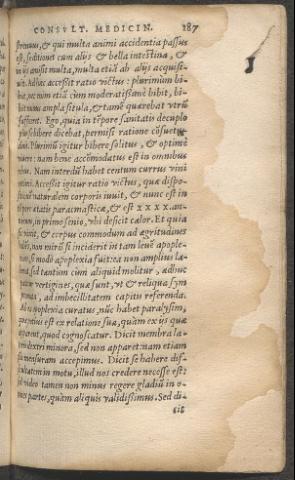 CONSVLT. MEDICIN. 187
strenuus, & qui multa animi accidentia passus
est, seditiones cum alijs & bella intestina, &
amisit multa, multa etiā ab alijs acquisi-
uit. Adhæc accessit ratio victus: plurimùm bi-
nec num etiā cùm moderatissamè bibit, bi-
ampla situla, & tamē quærebat verū
Ego, quia in tēpore sanitatis decuplo
bibere dicebat, permisi ratione cōsuetu-
Plurimū igitur bibere solitus, & optimè
nam bene accōmodatus est in omnibus
Nam interdū habet centum currus vini
Accessit igitur ratio victus, quæ dispo-
naturalem corporis iuuit, & nunc est in
ætatis paracmasticæ, & est xxxx. an-
in primo senio, vbi deficit calor. Et quia
& corpus commodum ad ægritudines
non mirū si inciderit in tam leuē apople-
si modò apoplexia fuit: ea non amplius
sed tantùm cum aliquid molitur, adhuc
vertigines, quæ sunt, vt & reliqua sym
ad imbecillitatem capitis referenda.
apoplexia curatus, nūc habet paralysim,
est ex relatione sua, quàm ex ijs quæ
quod cognoscatur. Dicit membra la-
dextri minora, sed non apparet: nam etiam
mensuram accepimus. Dicit se habere dif-
ficultatem in motu, illud nos credere necesse est:
video tamen non minus regere gladiū in o-
mnes partes, quàm aliquis validissimus. Sed di-